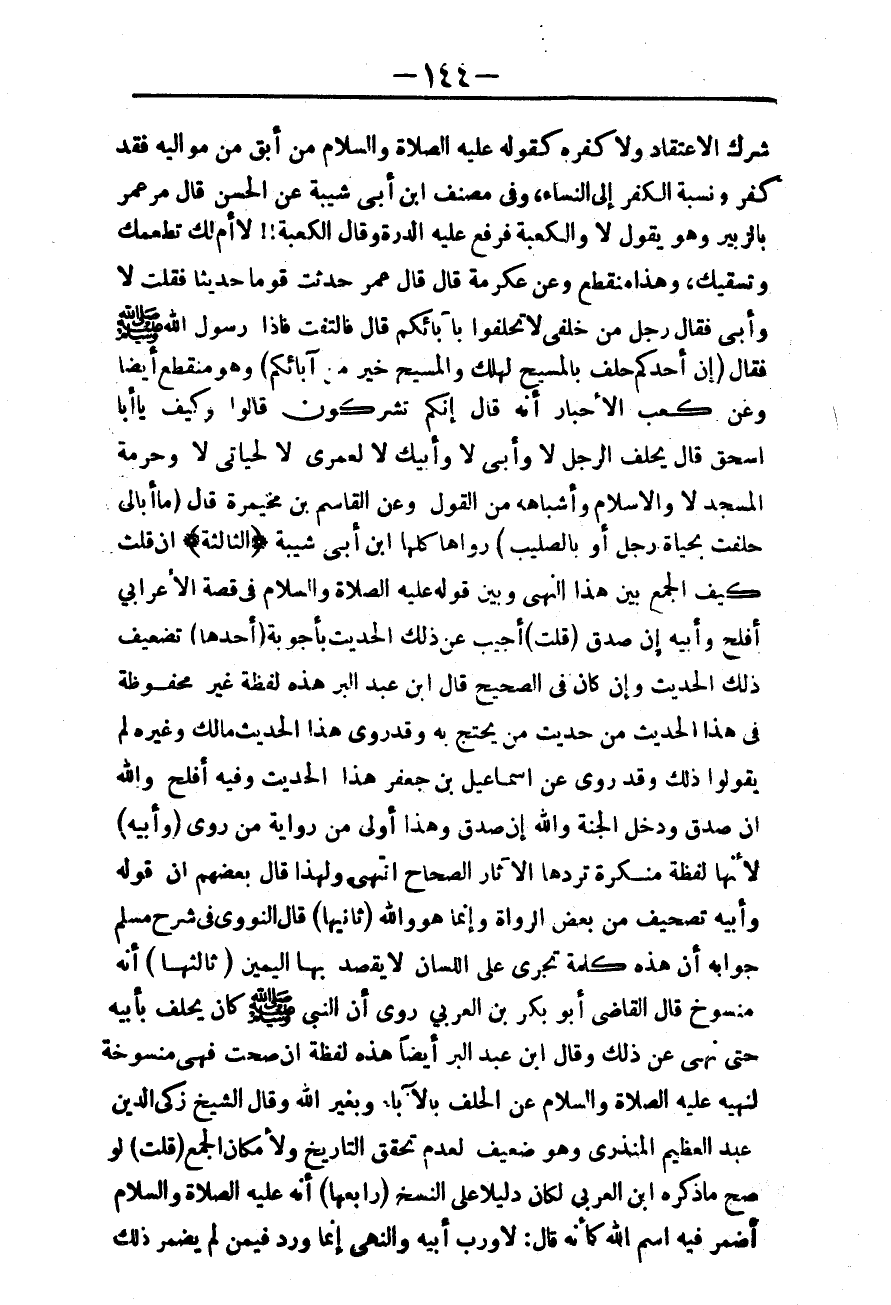 — ١٤٤ —
شرك الاعتقاد ولا كفره كقوله عليه الصلاة والسلام من أبق من مواليه فقد
كفر ونسبة الكفر إلى النساء، وفى مصنف ابن أبى شيبة عن الحسن قال مر عمر
بالزبير وهو يقول لا والكعبة فرفع عليه الدرة وقال الكعبة!! لا أم لك تطعمك
وتسقيك، وهذا منقطع وعن عكرمة قال قال عمر حدثت قوما حديثا فقلت لا
وأبى فقال رجل من خلفى لا تحلفوا بآبائكم قال فالتفت فاذا رسول الله ﷺ
فقال (إن أحدكم حلف بالمسيح لهلك والمسيح خير من آبائكم) وهو منقطع أيضا
وعن كعب الأحبار أنه قال إنكم تشركون قالوا وكيف ياأبا
اسحق قال يحلف الرجل لا وأبى لا وأبيك لا لعمرى لا لحياتى لا وحرمة
المسجد لا والاسلام وأشباهه من القول وعن القاسم بن مخيمرة قال (ماأبالى
حلفت بحياة رجل أو بالصليب) رواها كلها ابن أبى شيبة ﴿الثالثة﴾ ان قلت
كيف الجمع بين هذا النهى وبين قوله عليه الصلاة والسلام فى قصة الأعرابي
أفلح وأبيه إن صدق (قلت) أجيب عن ذلك الحديث بأجوبة (أحدها) تضعيف
ذلك الحديث وإن كان فى الصحيح قال ابن عبد البر هذه لفظة غير محفوظة
فى هذا الحديث من حديث من يحتج به وقد روى هذا الحديث مالك وغيره لم
يقولوا ذلك وقد روى عن اسماعيل بن جعفر هذا الحديث وفيه أفلح والله
ان صدق ودخل الجنة والله إن صدق وهذا أولى من رواية من روى (وأبيه)
لأنها لفظة منكرة تردها الآثار الصحاح انتهى ولهذا قال بعضهم ان قوله
وأبيه تصحيف من بعض الرواة وإنما هو والله (ثانيها) قال النووى فى شرح مسلم
جوابه أن هذه كلمة تجرى على اللسان لا يقصد بها اليمين (ثالثها) أنه
منسوخ قال القاضى أبو بكر بن العربي روى أن النبي ﷺ كان يحلف بأبيه
حتى نهى عن ذلك وقال ابن عبد البر أيضاً هذه لفظة ان صحت فهى منسوخة
لنهيه عليه الصلاة والسلام عن الحلف بالآباء وبغير الله وقال الشيخ زكى الدين
عبد العظيم المنذرى وهو ضعيف لعدم تحقق التاريخ ولأمكان الجمع (قلت) لو
صح ماذكره ابن العربي لكان دليلا على النسخ (رابعها) أنه عليه الصلاة والسلام
أضمر فيه اسم الله كأنه قال: لا ورب أبيه والنهى إنما ورد فيمن لم يضمر ذلك